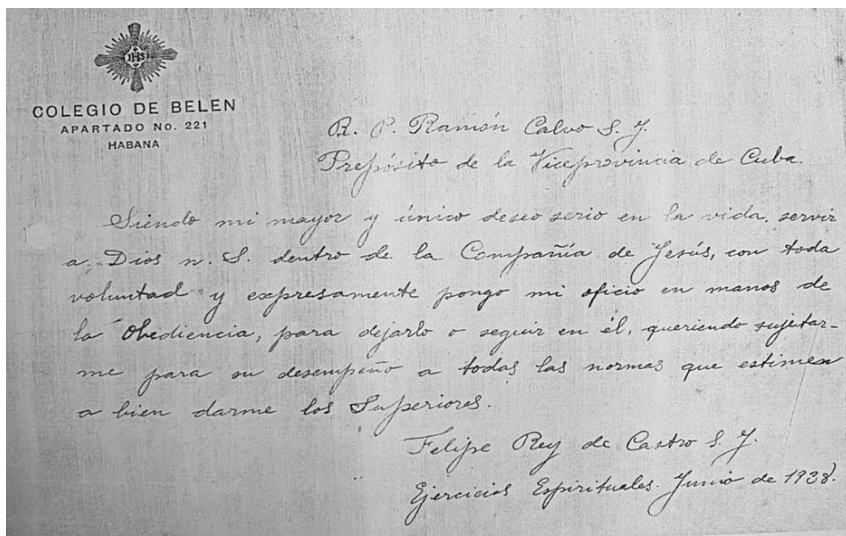 IHS
COLEGIO DE BELEN
APARTADO No. 221
HABANA
R. P. Ramón Calvo S. J.
Prepósito de la Viceprovincia de Cuba.
Siendo mi mayor y único deseo serio en la vida, servir
a Dios n. S. dentro de la Compañía de Jesús, con toda
voluntad y expresamente pongo mi oficio en manos de
la Obediencia, para dejarlo o seguir en él, queriendo sujetar-
me para su desempeño a todas las normas que estimen
a bien darme los Superiores.
Felipe Rey de Castro S. J.
Ejercicios Espirituales. Junio de 1938.